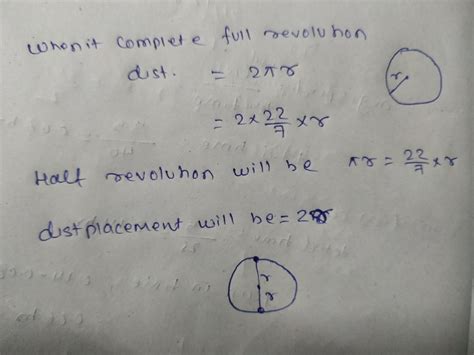 When it complete full revolution
dist. = 2πr
r
= 2 × 22/7 × r
Half revolution will be πr = 22/7 × r
distplacement will be = 2r
r
r